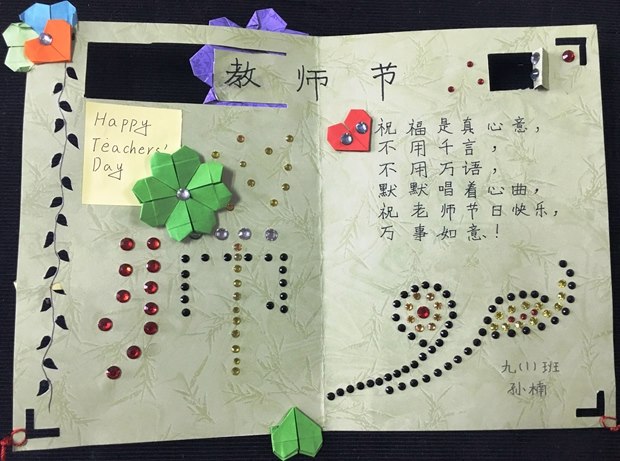 教师节
Happy
Teachers'
Day
师
祝福是真心意，
不用千言，
不用万语，
默默唱着心曲，
祝老师节日快乐，
万事如意！
九(1)班
孙楠